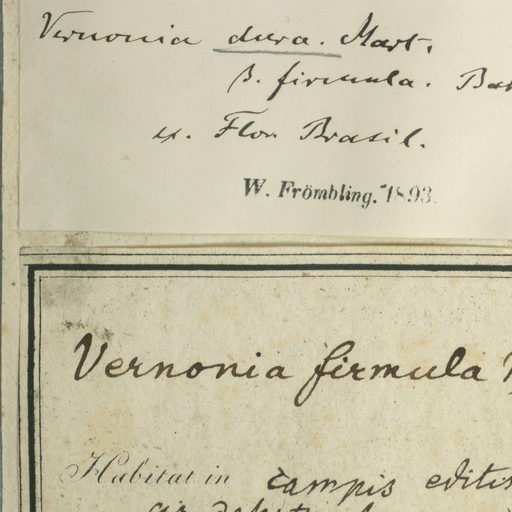 Vernonia dura. Mart.
β. firmula. Bak
ex. Flor. Brasil.
W. Frömbling. 1893.
Vernonia firmula
Habitat in campis editis